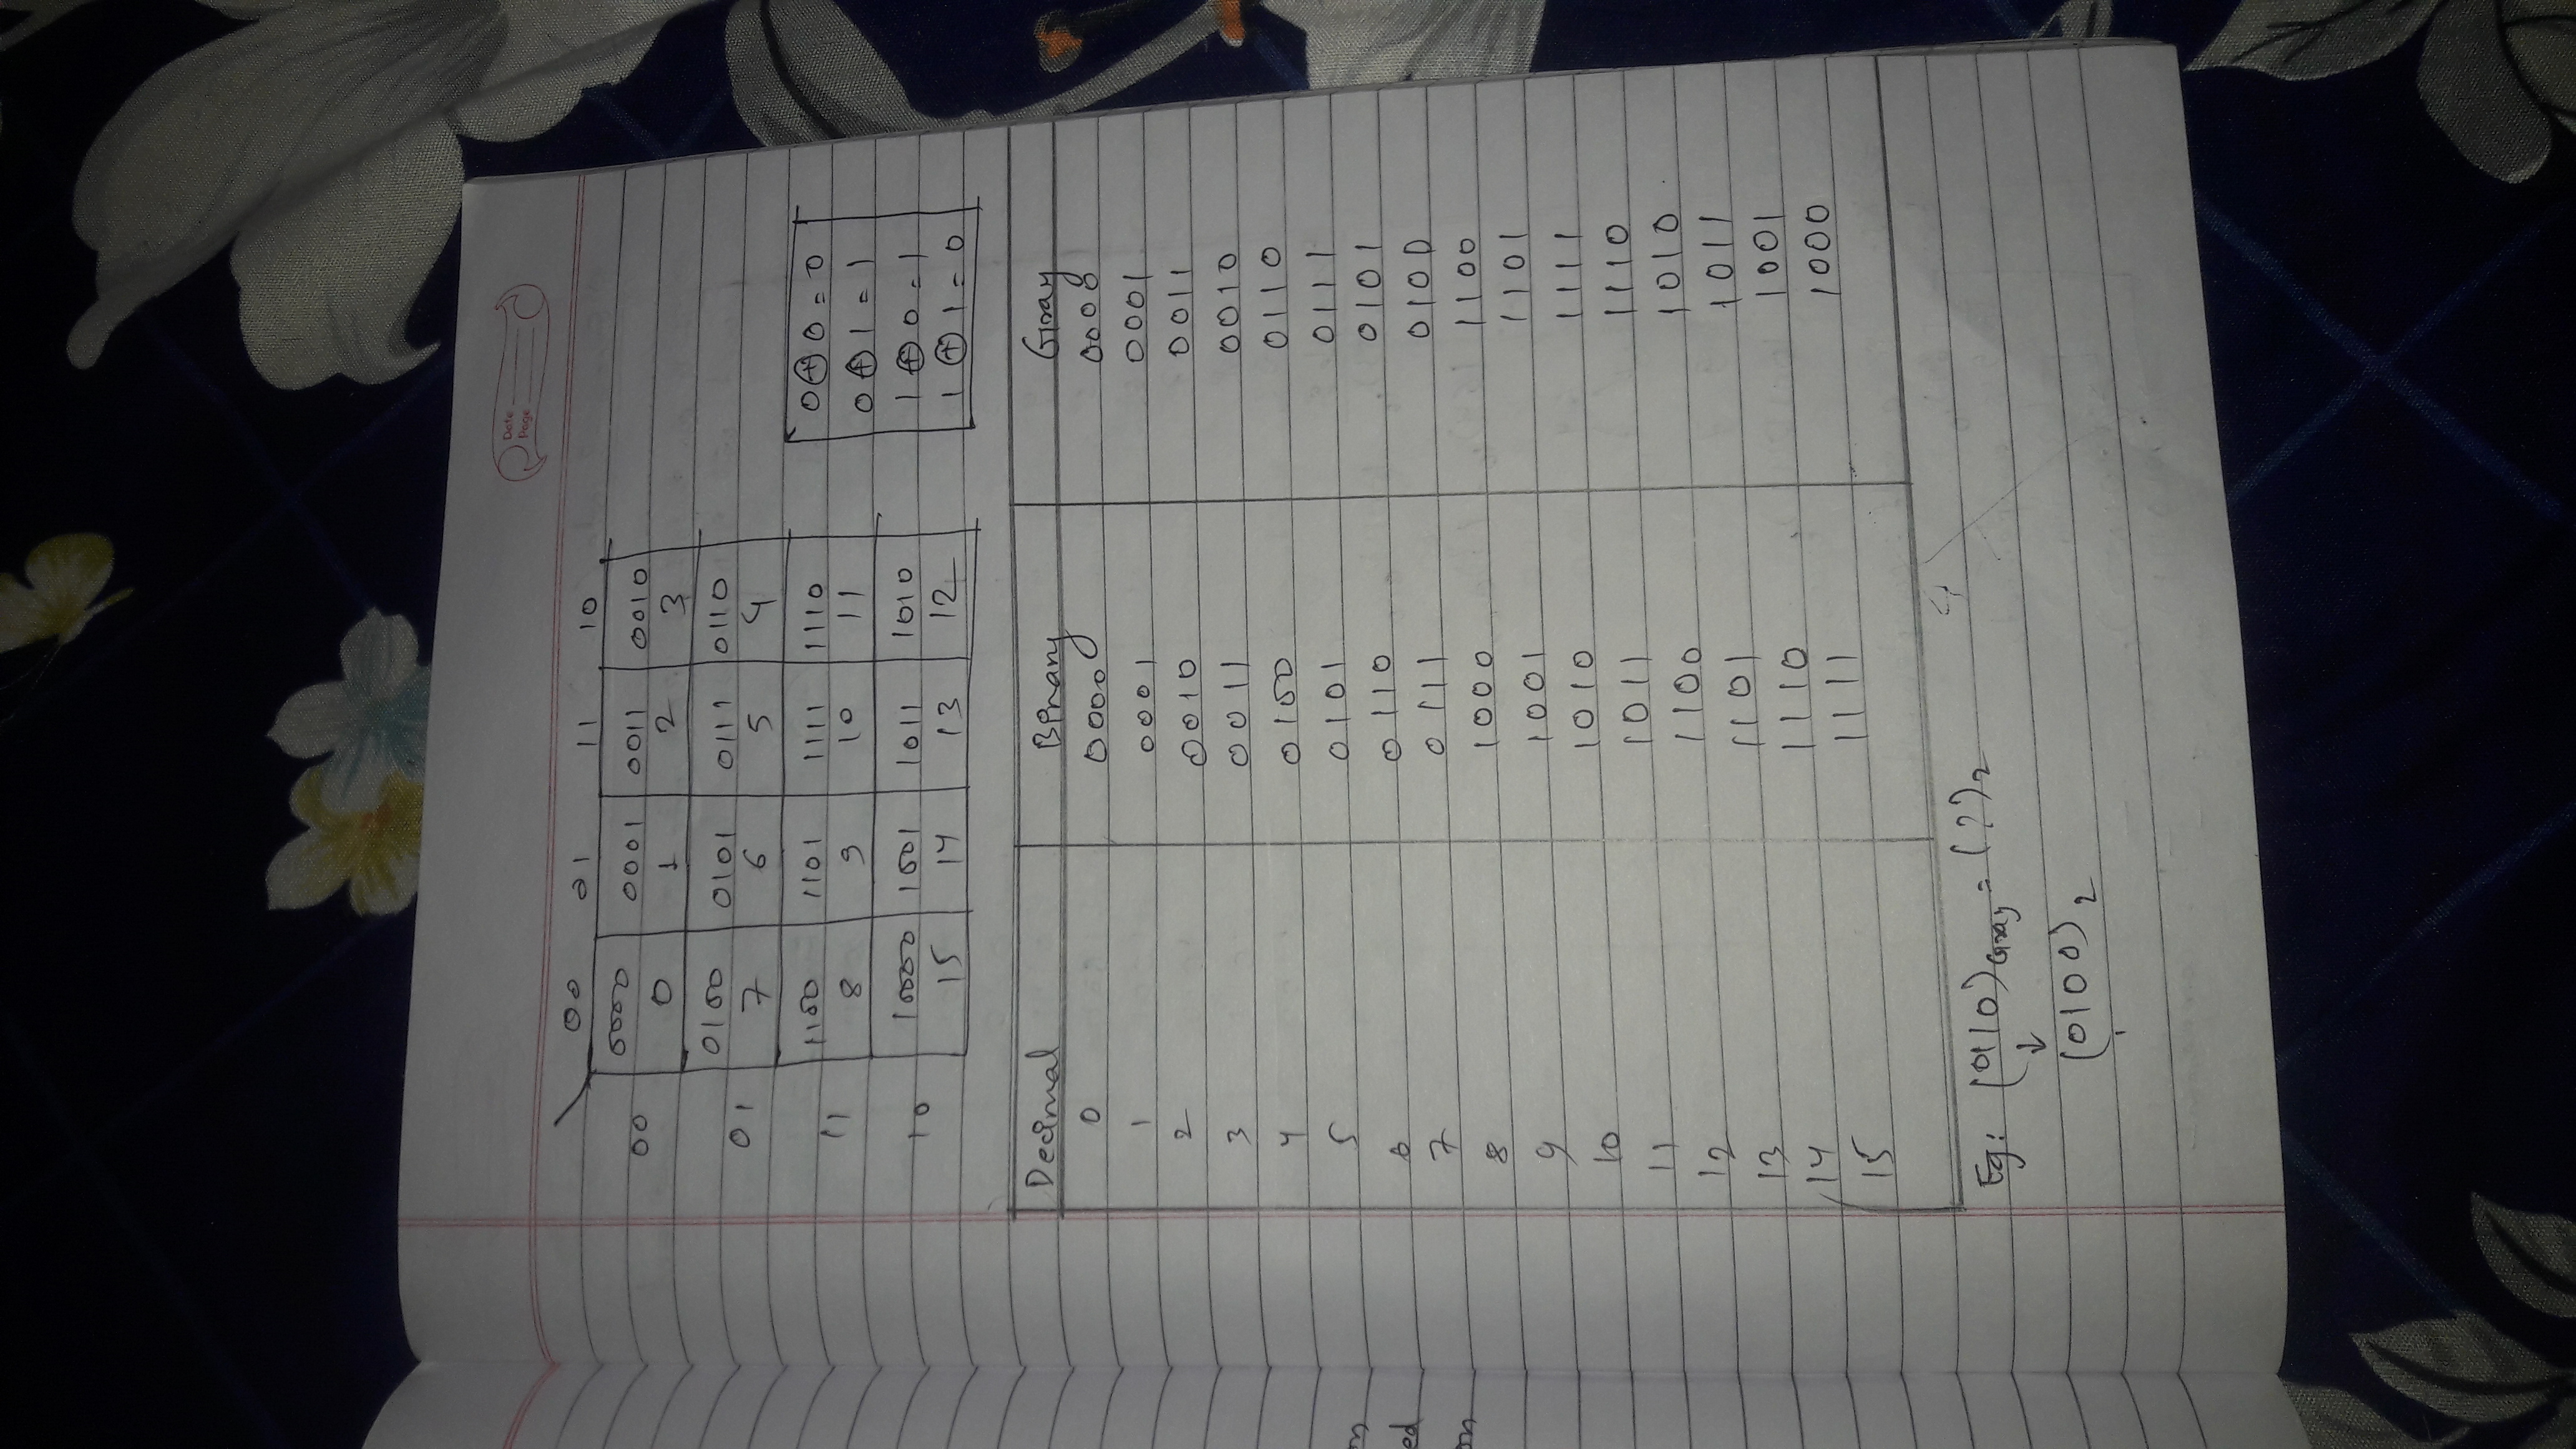 Date
Page
00 01 11 10
00 0000 0001 0011 0010
0 1 2 3
01 0100 0101 0111 0110
7 6 5 4
11 1100 1101 1111 1110
8 9 10 11
10 10000 1001 1011 1010
15 14 13 12
0 ⊕ 0 = 0
0 ⊕ 1 = 1
1 ⊕ 0 = 1
1 ⊕ 1 = 0
Decimal Binary Gray
0 0000 0000
1 0001 0001
2 0010 0011
3 0011 0010
4 0100 0110
5 0101 0111
6 0110 0101
7 0111 0100
8 1000 1100
9 1001 1101
10 1010 1111
11 1011 1110
12 1100 1010
13 1101 1011
14 1110 1001
15 1111 1000
Eg: (0110)Gray = (?)2
↓
(0100)2
ed